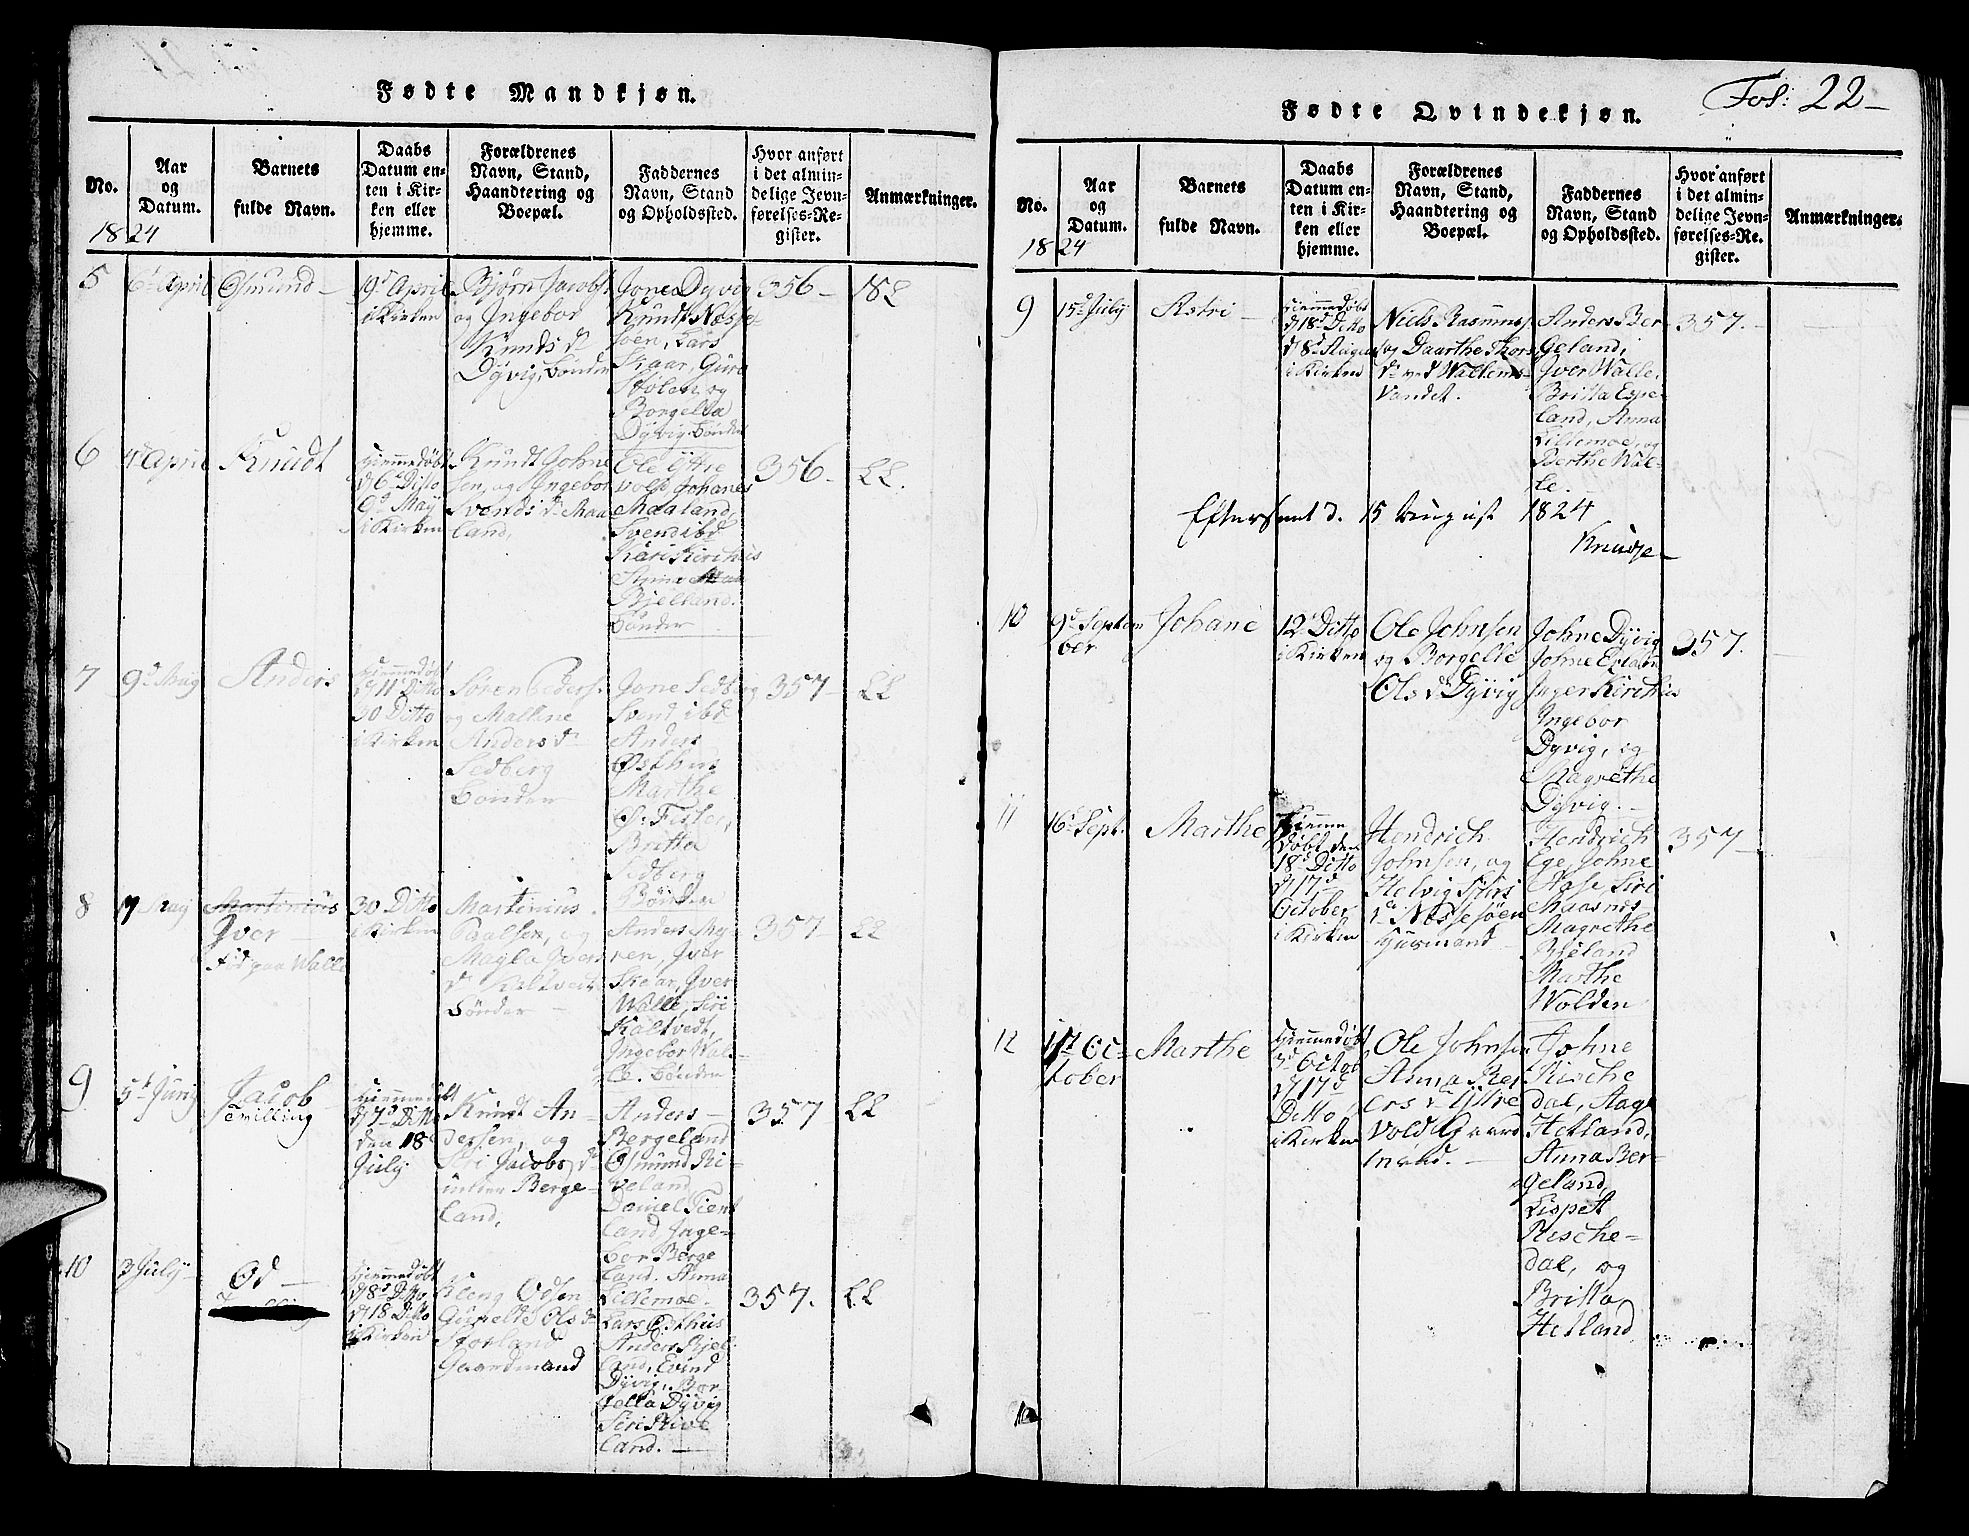 Fødte Mandkjøn.
No.
Aar
og
Datum.
1824
Barnets
fulde Navn.
Daabs
Datum en-
ten i Kir-
ken eller
hjemme.
Forældrenes
Navn, Stand,
Haandtering og
Boepæl.
Faddernes
Navn, Stand
og Opholdssted.
Hvor anført
i det almin-
delige Jevn-
førelses-Re-
gister.
Anmærkninger.
5
6 April
Osmund
19d April
i Kirken
Bjørn Jacobs
og Ingebor
Knuds d
Dyvig, Bønder
Jone Dyvig
Knudt Næsse-
søen, Lars
Skaar, Guro
Stølen og
Borgella
Dyvig Bønder
356
6
April
Knudt
Hiemmedøbt
d 6d Ditto
9d May
i Kirken
Knudt Johne
sen, og Ingebor
Svends d Maa
land,
Ole Yttre
vold, Johanes
Maaland,
Svend ibd
Kari Kirchus
Anna
Bjelland.
Bønder
356
7
9d May
Anders
Hiemmedøbt
d 11d Ditto
30 Ditto
i Kirken
Søren Peders
og Mallene
Anders d
Sedberg
Bønder
Jone Sedberg
Svend ibd
Anders
Østhus
Marthe
Ø. Fister,
Britta
Sedberg
Bønder
357
8
7 May
Martinius
Iver
Fød paa Walle
30 Ditto
i Kirken
Martinius
Paalsen, og
Magla Ivers
d Kaltvedt
Bønder
Anders My-
ren, Iver
Skaar, Iver
Walle, Siri
Kaltvedt,
Ingebor Wal-
le. Bønder
357
9
5d Juny
Jacob
Tvilling
Hiemmedøbt
d 7d Ditto
den 18
July
Knudt An-
dersen, og
Siri Jacobs d
Berge-
land,
Anders
Bergeland
Osmund Ri-
veland
Daniel
land Inge-
bor Berge
land. Anna
Lillemoe.
357
10
3 July
Od
Hiemmedøbt
d 8d Ditto
d 18 Ditto
i Kirken
Kleng Odsen
Gunelle Ols d
Storland
Gaardmand
Lars Østhus
Anders Bjel
land, Evind
Dyvig, Bor
gella Dyvig
Siri Rive
land.
357.
Fødte Qvindekjøn.
Fol: 22
No.
Aar
og
Datum.
1824
Barnets
fulde Navn.
Daabs
Datum en-
ten i Kir-
ken eller
hjemme.
Forældrenes
Navn, Stand,
Haandtering og
Boepæl.
Faddernes
Navn, Stand
og Opholdssted.
Hvor anført
i det almin-
delige Jevn-
førelses-Re-
gister.
Anmærkninger.
9
15d July
Astri
Hiemmedøbt
d 18d Ditto
d 8d August
i Kirken
Niels Rasmus
og Daarthe Thors
d ved Wallems-
Vandet.
Anders Ber
geland,
Iver Walle,
Britta Espe
land, Anna
Lillemoe, og
Berthe Wal-
le.
357.
Efterseet d. 15 August 1824
Knudse
10
9d Septem
ber
Johane
12d Ditto
i Kirken
Ole Johnsen
og Borgelle
Ols d Dyvig
Johne Dyvig
Johne
Inger Kirchus
Ingebor
Dyvig, og
Magrethe
Dyvig.
357.
11
16d Sept.
Marthe
Hiemme
døbt den
18d Ditto
d 17d
October
i Kirken
Hendrich
Johnsen, og
Helvig
d Næssesøen
Huusmand
Hendrich
Ege, Johne
Aase Siri
Maasnes
Magrethe
Bjeland
Marthe
Wolden
357
12
1st Oc-
tober
Marthe
Hiemmedøbt
3d Octob
d 17d
Ditto
i Kirken
Ole Johnsen
Anna Ber
ers d Yttre
vold Gaard
mand.
Johne
Rische
dal, Aage
Hetland,
Anna Ber-
geland,
Lispet
Rische-
dal, og
Britta
Hetland